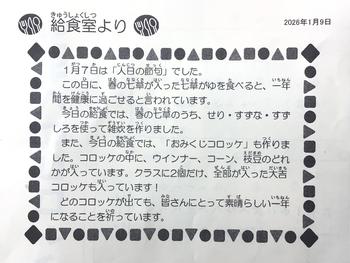 きゅうしょくしつ
給食室より
2026年1月9日
1月7日は「人日の節句」でした。
この日に、春の七草が入った七草がゆを食べると、一年
間を健康に過ごせると言われています。
今日の給食では、春の七草のうち、せり・すずな・すず
しろを使って雑炊を作りました。
また、今日の給食では、「おみくじコロッケ」も作りま
した。コロッケの中に、ウインナー、コーン、枝豆のどれ
かが入っています。クラスに2個だけ、全部が入った大吉
コロッケも入っています！
どのコロッケが出ても、皆さんにとって素晴らしい一年
になることを祈っています。